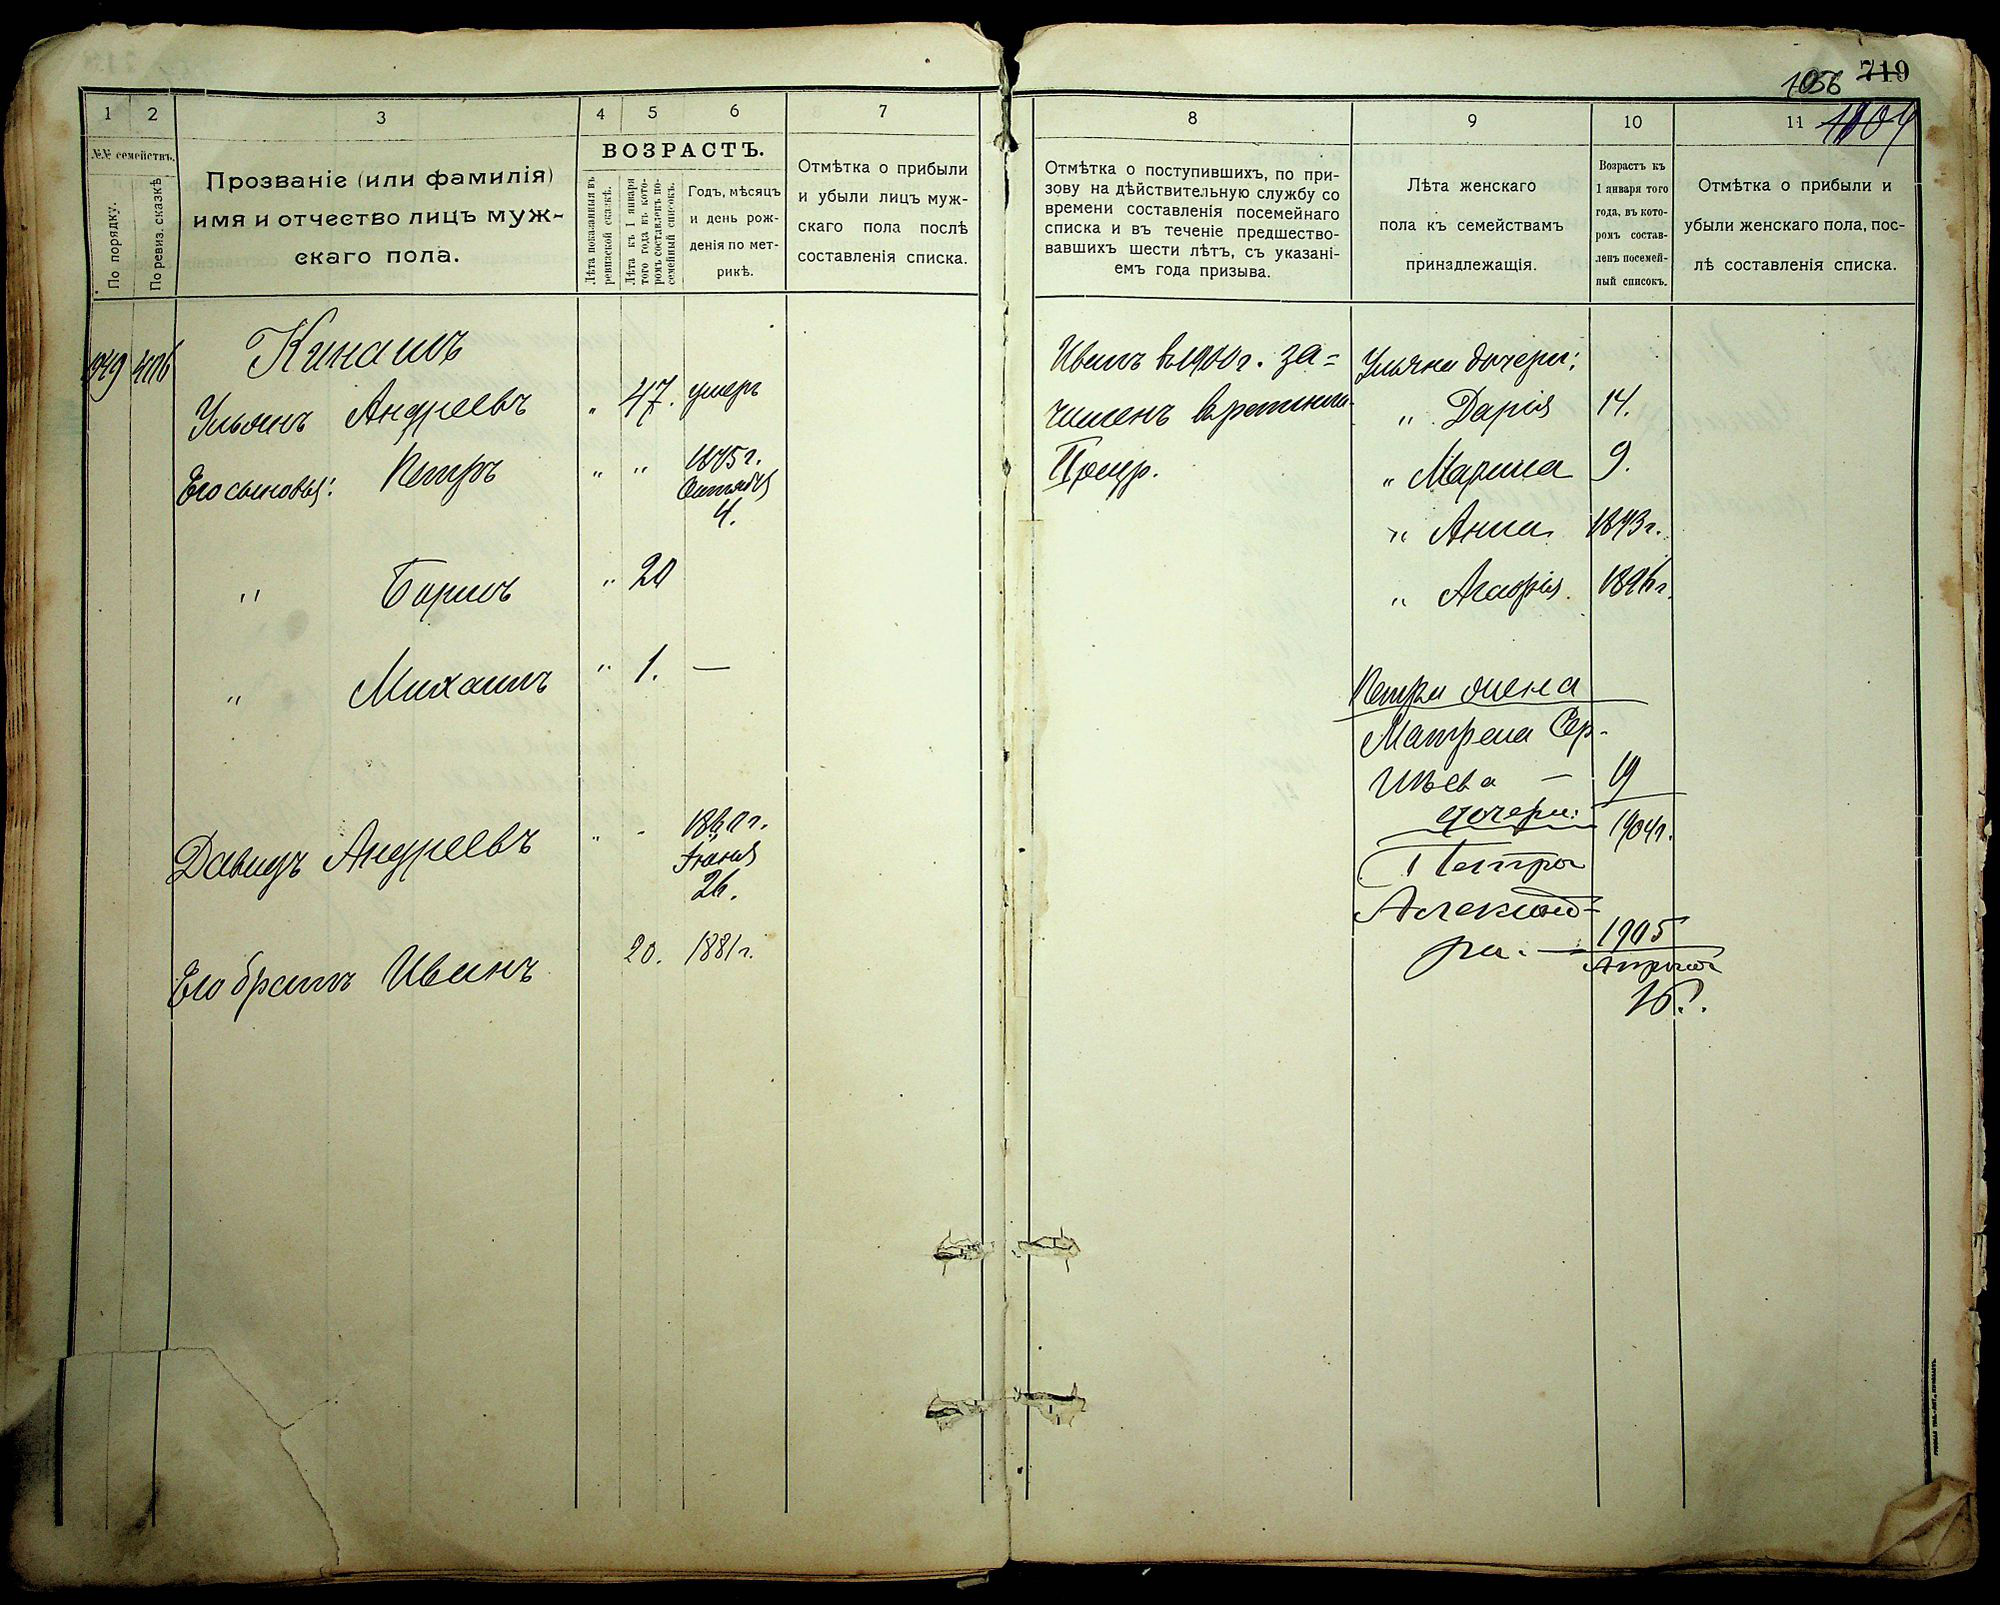 1056 719
1104
1
2
3
4
5
6
7
№№ семействъ.
По порядку.
По ревиз. сказкѣ
Прозваніе (или фамилія)
имя и отчество лицъ муж-
скаго пола.
ВОЗРАСТЪ.
Лѣта показанныя въ
ревизской сказкѣ.
Лѣта къ 1 января
того года въ кото-
ромъ составленъ по-
семейный списокъ.
Годъ, мѣсяцъ
и день рож-
денія по мет-
рикѣ.
Отмѣтка о прибыли
и убыли лицъ муж-
скаго пола послѣ
составленія списка.
Кинашъ
Ульянъ Андреевъ " 47. умеръ
Его сыновья: Петръ " " 1875 г.
Октября
4.
" Борисъ " 20
" Михаилъ " 1. —
Давидъ Андреевъ " " 1860 г.
26.
Его братъ Иванъ 20. 1881 г.
8
9
10
11
Отмѣтка о поступившихъ, по при-
зову на дѣйствительную службу со
времени составленія посемейнаго
списка и въ теченіе предшество-
вавшихъ шести лѣтъ, съ указані-
емъ года призыва.
Лѣта женскаго
пола къ семействамъ
принадлежащія.
Возрастъ къ
1 января того
года, въ кото-
ромъ состав-
ленъ посемей-
ный списокъ.
Отмѣтка о прибыли и
убыли женскаго пола, пос-
лѣ составленія списка.
Иванъ въ 1900 г. за-
численъ в ратники
Ульяна дочери:
" Дарія 14.
" Марина 9.
" Анна 1893 г.
" Агафія 1896 г.
Петра жена
Матрена Сер-
гѣева — 19
дочери: 1904 г.
Петра
Александ-
ра. — 1905
Апрѣля
16.